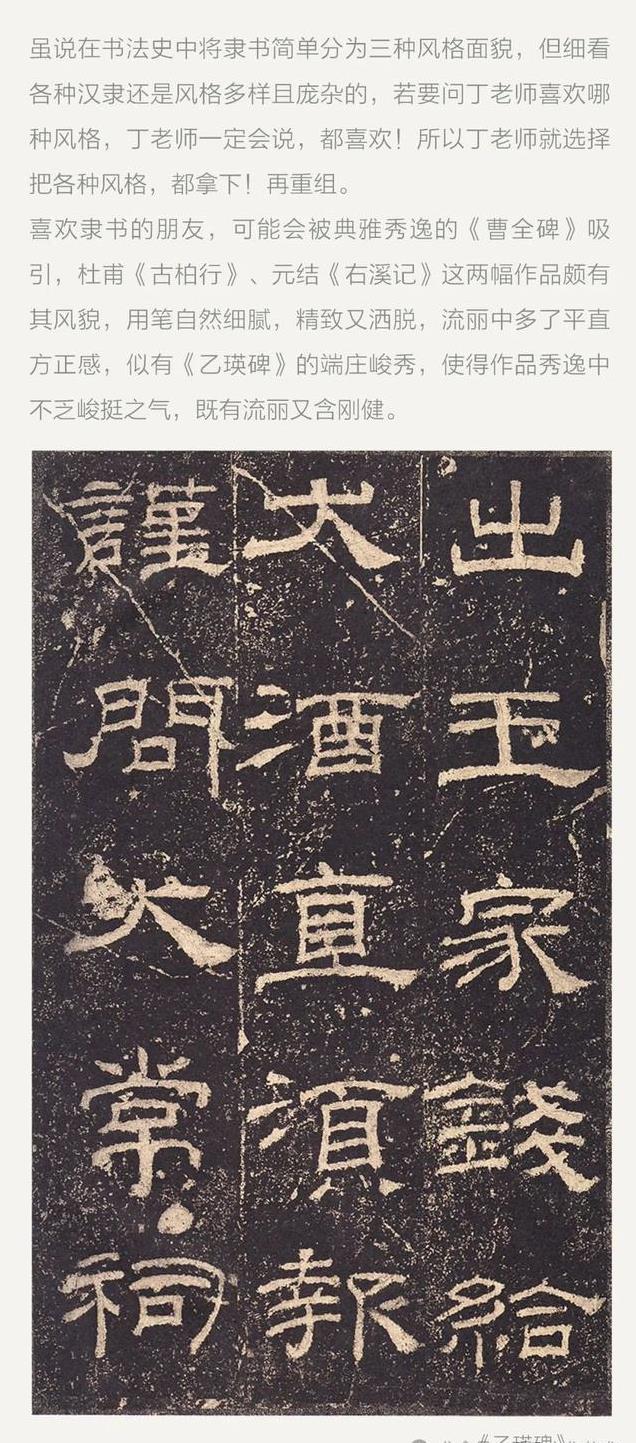 虽说在书法史中将隶书简单分为三种风格面貌，但细看
各种汉隶还是风格多样且庞杂的，若要问丁老师喜欢哪
种风格，丁老师一定会说，都喜欢！所以丁老师就选择
把各种风格，都拿下！再重组。
喜欢隶书的朋友，可能会被典雅秀逸的《曹全碑》吸
引，杜甫《古柏行》、元结《右溪记》这两幅作品颇有
其风貌，用笔自然细腻，精致又洒脱，流丽中多了平直
方正感，似有《乙瑛碑》的端庄峻秀，使得作品秀逸中
不乏峻挺之气，既有流丽又含刚健。
出王家錢給
犬酒直須報
謹問大常祠
《乙瑛碑》